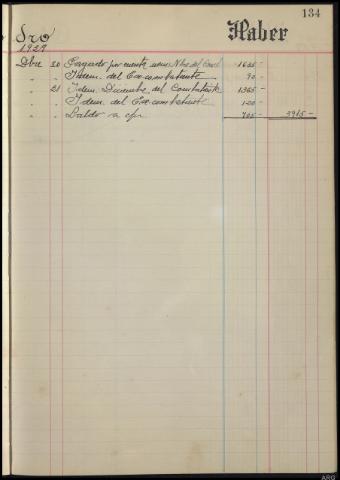 134
Sro Haber
1929
Dbre 20 Pagado por cuenta Nbre del Comb 1635 -
" " Idem. del Ex-combatiente 90 -
" 21 Idem. Diciembre del Combatiente 1365 -
" " Idem del Ex-combatiente 120 -
" " Saldo a c/n 705 - 3915 -
ARG